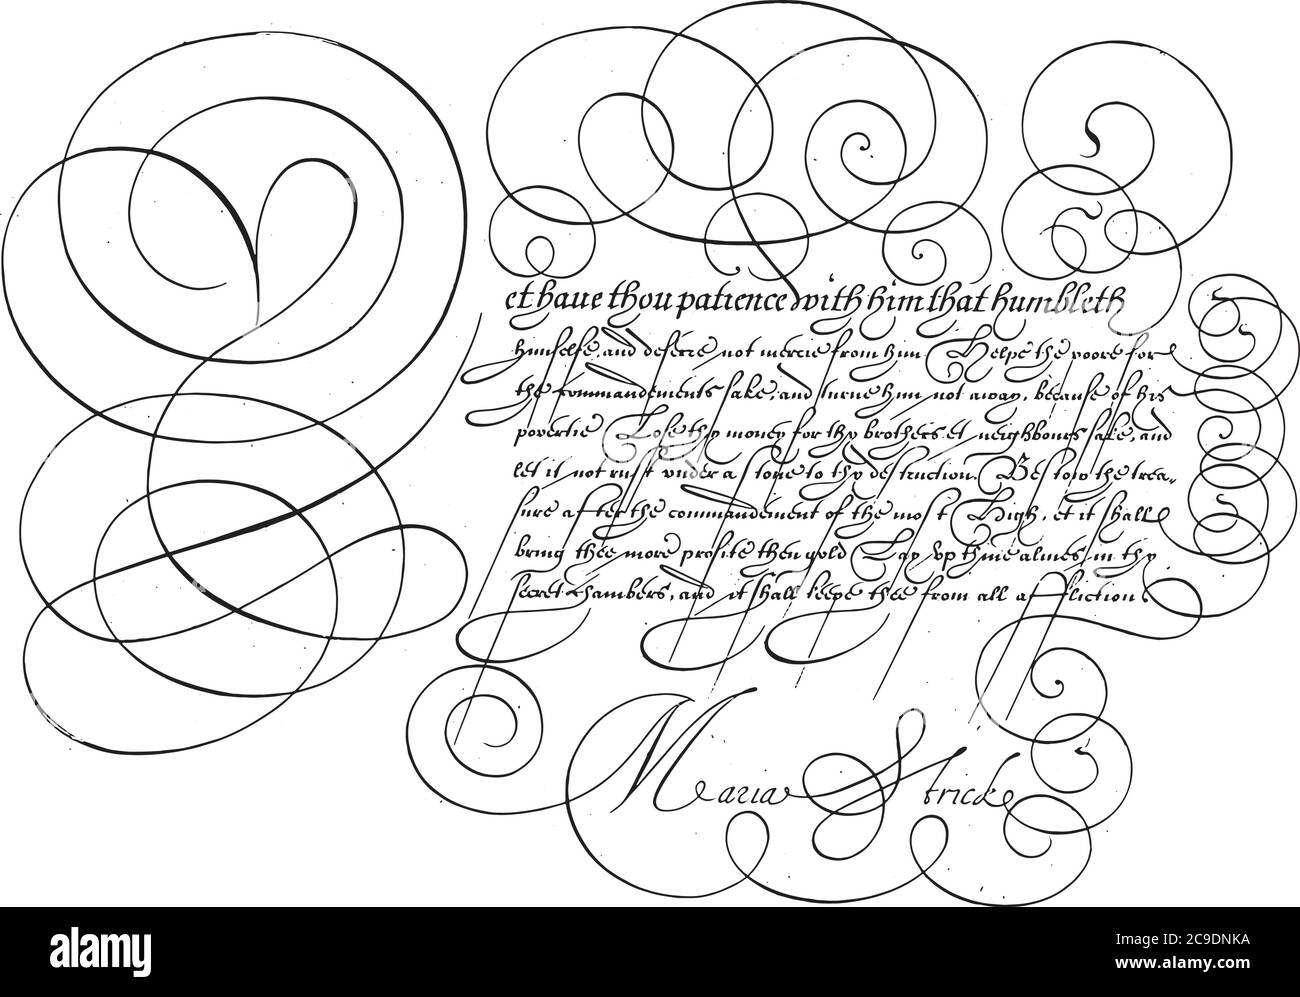 Yet have thou patience with him that humbleth
himselfe, and deferre not mercie from him Helpe the poore for
the commandements sake, and turne him not away, because of his
povertie Lose thy money for thy brothers et neighbours sake, and
let it not rust under a stone to thy destruction. Bestow the trea-
sure after the commandement of the most High, et it shall
bring thee more profite then gold Lay up thine almes in thy
secret chambers, and it shall keepe thee from all affliction
Maria Strick
alamy
Image ID: 2C9DNKA
www.alamy.com